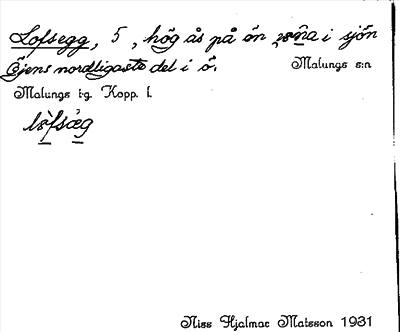 Lofsegg, 5, hög ås på ön i sjön
Öjens nordligaste del i ö.
Malungs s:n
Malungs t:g. Kopp. l.
Niss Hjalmar Matsson 1931